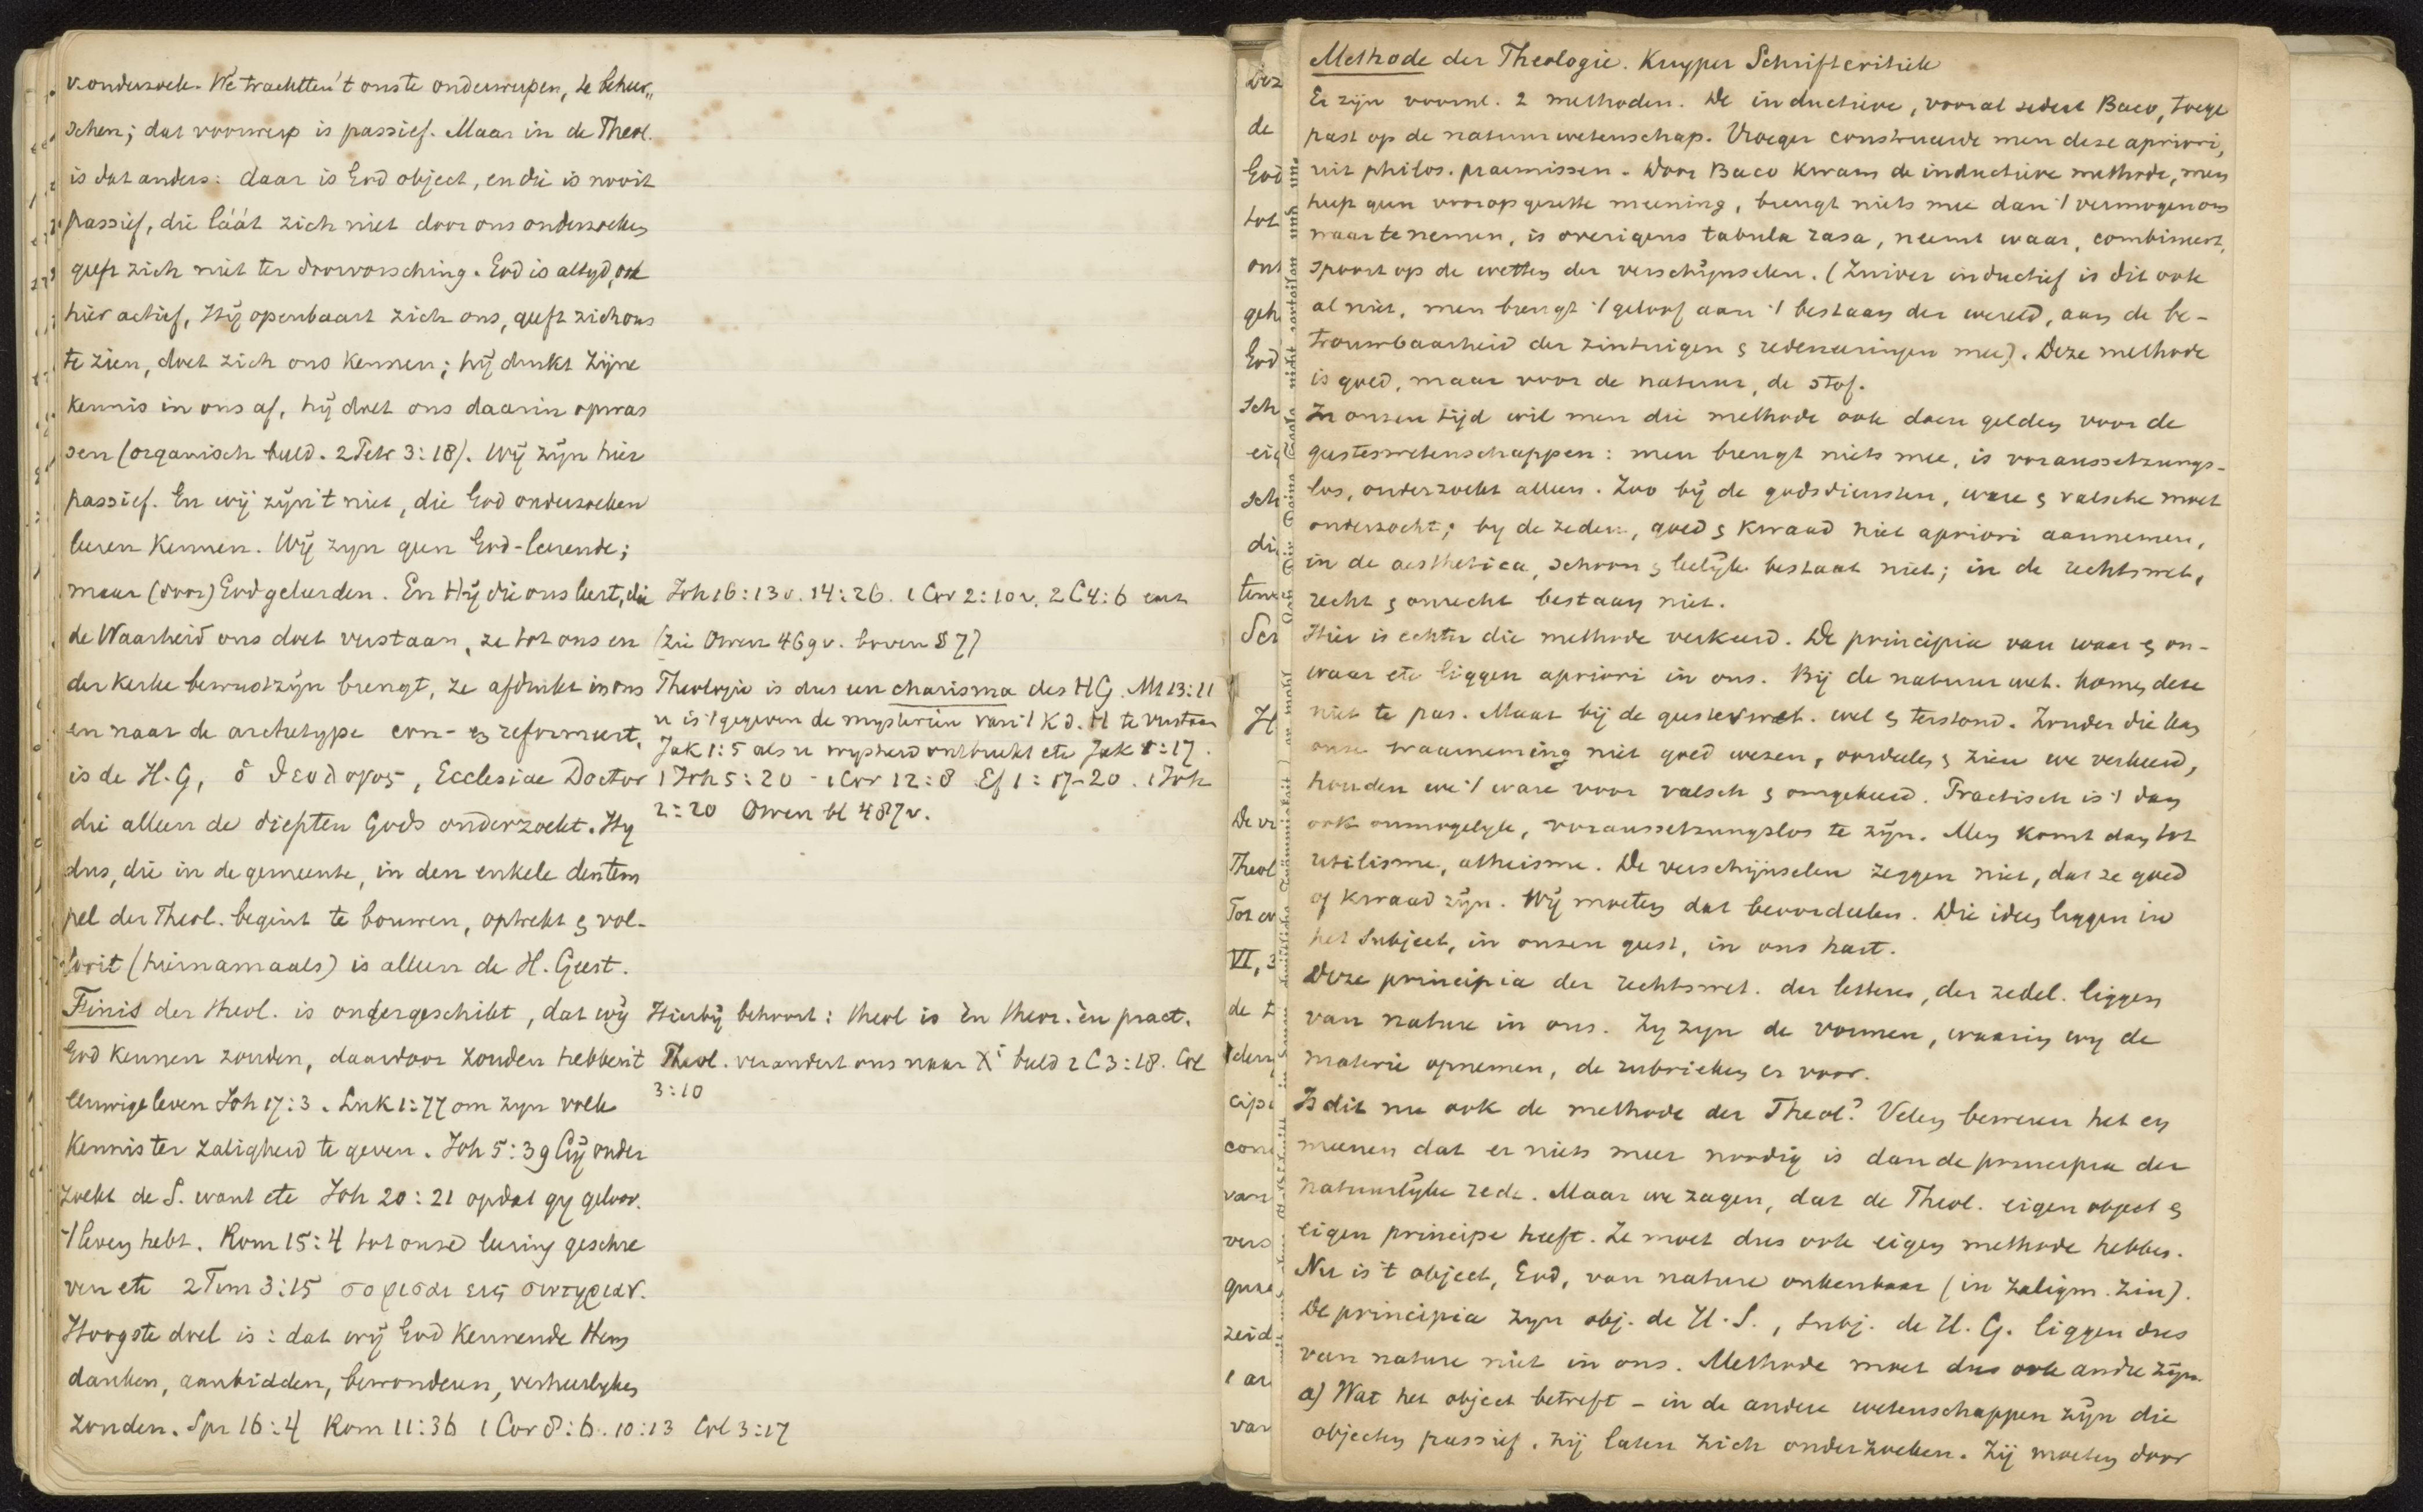 v. onderzoek. We trachtten 't ons te onderwerpen, te beheer„
schen; dat voorwerp is passief. Maar in de Theol.
is dat anders: daar is God object, en die is nooit
passief, die láát zich niet door ons onderzoeken
geeft zich niet ter doorvorsching. God is altyd, ook
hier actief, Hij openbaart zich ons, geeft zich ons
te zien, doet zich ons kennen; hij drukt Zijne
kennis in ons af, hij doet ons daarin opwas
sen (organisch beeld. 2 Petr 3:18). Wij zijn hier
passief. En wij zijn 't niet, die God onderzoeken
leeren kennen. Wij zyn geen God-leerende;
maar (door) God geleerden. En Hij die ons leert, die
de Waarheid ons doet verstaan, ze tot ons en
der kerke bewustzijn brengt, ze afdrukt in ons
en naar de archetype con- en reformeert,
is de H. G, ὁ θεολογος, Ecclesiae Doctor
die alleen de diepten Gods onderzoekt. Hy
dus, die in de gemeente, in den enkele den tem
pel der Theol. begint te bouwen, optrekt en vol-
tooit (hiernamaals) is alleen de H. Geest.
Finis der theol. is ondergeschikt, dat wij
God kennen zouden, daardoor zouden hebben 't
eeuwige leven Joh 17:3. Luk 1:77 om zyn volk
kennis ter zaligheid te geven. Joh 5:39 Gij onder
zoekt de S. want etc Joh 20:21 opdat gy geloov.
't leven hebt. Rom 15:4 tot onze leering geschre
ven etc 2 Tim 3:15 σοφισαι εις σωτηριαν.
Hoogste doel is: dat wij God kennende Hem
danken, aanbidden, bewonderen, verheerlyken
zouden. Spr 16:4 Rom 11:36 1 Cor 8:6. 10:13 Col 3:17
Joh 16:13v. 14:26. 1 Cor 2:10v. 2 C 4:6
(Zie Owen 469v. boven § 7)
Theologie is dus een charisma des HG. Mt 13:11
u is 't gegeven de mysteriën van 't K d. H te verstaan
Jak 1:5 als u wysheid ontbreekt etc Jak 1:17.
1 Joh 5:20 - 1 Cor 12:8 Ef 1:17-20. 1 Joh
2:20 Owen bl 487v.
Hierbij behoort: theol is èn theor. èn pract.
Theol. verandert ons naar Xi beeld 2 C 3:18. Col
3:10
Dez
de
God
tot
ont
geh
God
sch
eig
sch
di
tenr
Scr
H
De vr
Theol
Tot
VI, 3
de
den
cipi
con
van
vers
zeid
van
Methode der Theologie. Kuyper Schriftcritiek
Er zijn voorml. 2 methoden. De inductieve, vooral sedert Baco, toege
past op de natuurwetenschap. Vroeger construeerde men deze apriori,
uit philos. praemissen. Door Baco kwam de inductieve methode, men
heeft geen vooropgezette meening, brengt niets mee dan 't vermogen om
waar te nemen, is overigens tabula rasa, neemt waar, combineert,
spoort op de wetten der verschijnselen. (Zuiver inductief is dit ook
al niet, men brengt 't geloof aan 't bestaan der wereld, aan de be-
trouwbaarheid der zintuigen en redeneeringen mee). Deze methode
is goed, maar voor de natuur, de stof.
In onzen tijd wil men die methode ook doen gelden voor de
geesteswetenschappen: men brengt niets mee, is voraussetzungs-
los, onderzoekt alleen. Zoo bij de godsdiensten, ware en valsche moet
onderzocht; by de zeden, goed en kwaad niet apriori aannemen,
in de aesthetica, schoon en leelijk bestaat niet; in de rechtswet.
recht en onrecht bestaan niet.
Hier is echter die methode verkeerd. De principia van waar en on-
waar etc liggen apriori in ons. Bij de natuurwet. komen deze
niet te pas. Maar bij de geesteswet. wel en terstond. Zonder die kan
onze waarneming niet goed wezen, oordeelen en zien we verkeerd,
houden we 't ware voor valsch en omgekeerd. Practisch is 't dan
ook onmogelyk, voraussetzungslos te zijn. Men komt dan tot
utilisme, atheisme. De verschijnselen zeggen niet, dat ze goed
of kwaad zijn. Wij moeten dat beoordeelen. Die ideen liggen in
het Subject, in onzen geest, in ons hart.
Deze principia der rechtswet. der letteren, der zedel. liggen
van nature in ons. Zy zyn de vormen, waarin wy de
materie opnemen, de rubrieken er voor.
Is dit nu ook de methode der Theol? Velen beweren het en
meenen dat er niets meer noodig is dan de principia der
natuurlijke rede. Maar we zagen, dat de Theol. eigen object en
eigen principe heeft. Ze moet dus ook eigen methode hebben.
Nu is 't object, God, van nature onkenbaar (in zaligm. zin).
De principia zyn obj. de H. S., subj. de H. G. liggen dus
van nature niet in ons. Methode moet dus ook andre zijn.
a) Wat het object betreft - in de andere wetenschappen zijn die
objecten passief, zij laten zich onderzoeken. Zij moeten door